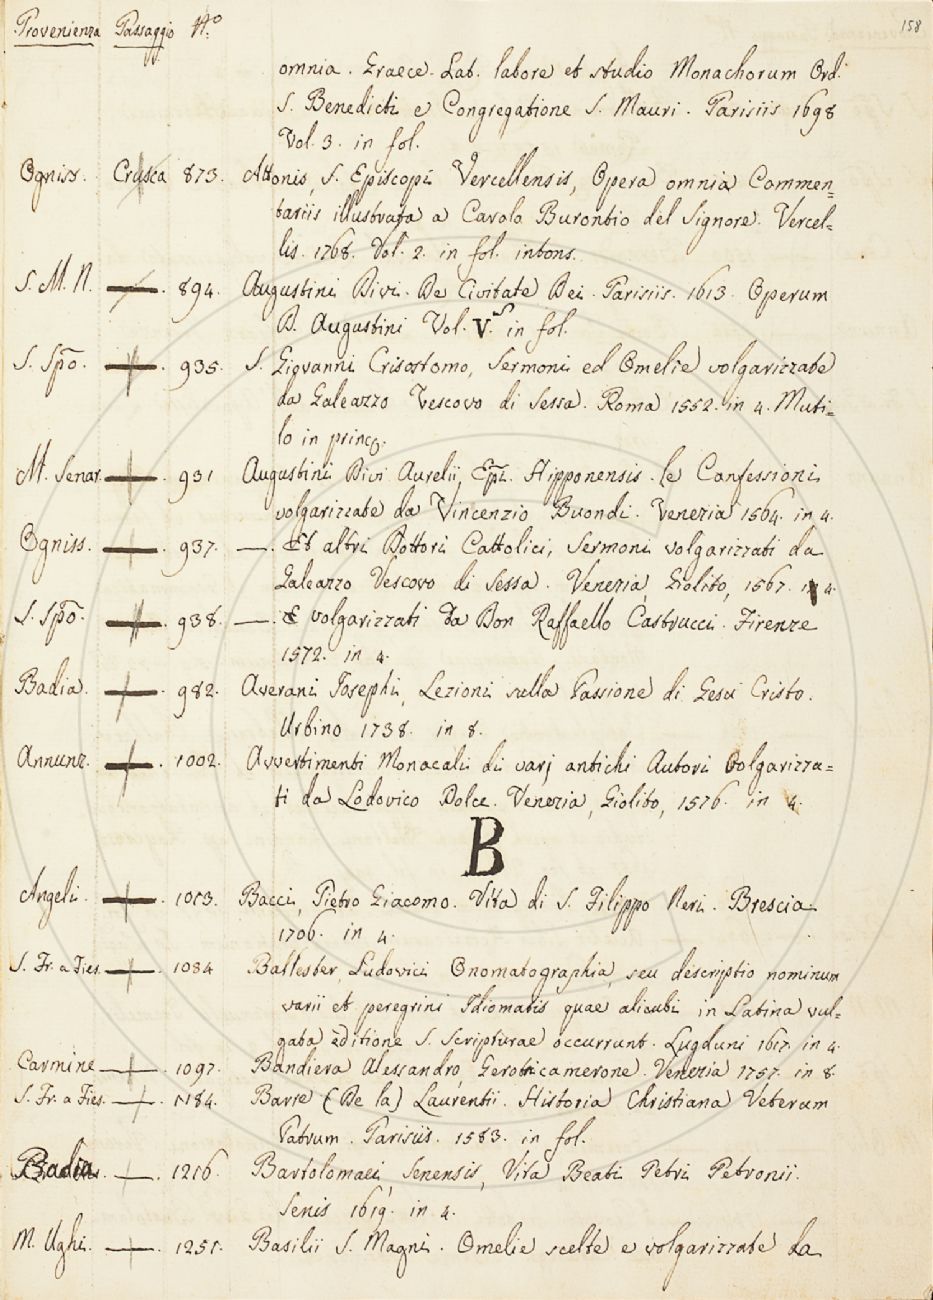 Provenienza Passaggio N.o 158
omnia. Graece. Lat. labore et studio Monachorum Ord.
S. Benedicti e Congregatione S. Mauri. Parisiis 1698
Vol. 3. in fol.
Ogniss. Crusca 873. Attonis, S. Episcopi Vercellensis, Opera omnia Commen=
tariis illustrata a Carolo Burontio del Signore. Vercel=
lis. 1768. Vol. 2. in fol. intons.
S. M. N. —. 894. Augustini Divi. De Civitate Dei. Parisiis. 1613. Operum
D. Augustini Vol. V.s in fol.
S. Spo. —. 935. S. Giovanni Crisostomo, Sermoni ed Omelie volgarizzate
da Galeazzo Vescovo di Sessa. Roma 1552. in 4. Muti=
lo in princo.
M. Senar. —. 931 Augustini Divi Aurelii, Epi. Hipponensis. le Confessioni
volgarizzate da Vincenzio Buondi. Venezia 1564. in 4.
Ogniss. —. 937. —. Et altri Dottori Cattolici, Sermoni volgarizzati da
Galeazzo Vescovo di Sessa. Venezia, Giolito, 1567. in 4.
S. Spo. —. 938. —. E volgarizzati da Don Raffaello Castrucci. Firenze
1572. in 4.
Badia. —. 982. Averani Josephi, Lezioni sulla Passione di Gesù Cristo.
Urbino 1738. in 8.
Annunz. —. 1002. Avvertimenti Monacali di varj antichi Autori Volgarizza=
ti da Lodovico Dolce. Venezia, Giolito, 1576. in 4.
B
Angeli —. 1053. Bacci, Pietro Giacomo. Vita di S. Filippo Neri. Brescia
1706. in 4.
S. Fr. a Fies. —. 1084 Ballester, Ludovici Onomatographia, seu descriptio nominum
varii et peregrini Idiomatis quae alicubi in Latina vul=
gata editione S. Scripturae occurrunt. Lugduni 1617. in 4.
Carmine —. 1097. Bandiera Alessandro, Gerotricamerone. Venezia 1757. in 8.
S. Fr. a Fies. —. 1184. Barre (De la) Laurentii. Historia Christiana Veterum
Patrum. Parisiis. 1583. in fol.
Badia —. 1216. Bartolomaei, Senensis, Vita Beati Petri Petronii.
Senis 1619. in 4.
M. Ughi. —. 1251. Basilii S. Magni. Omelie scelte e volgarizzate da